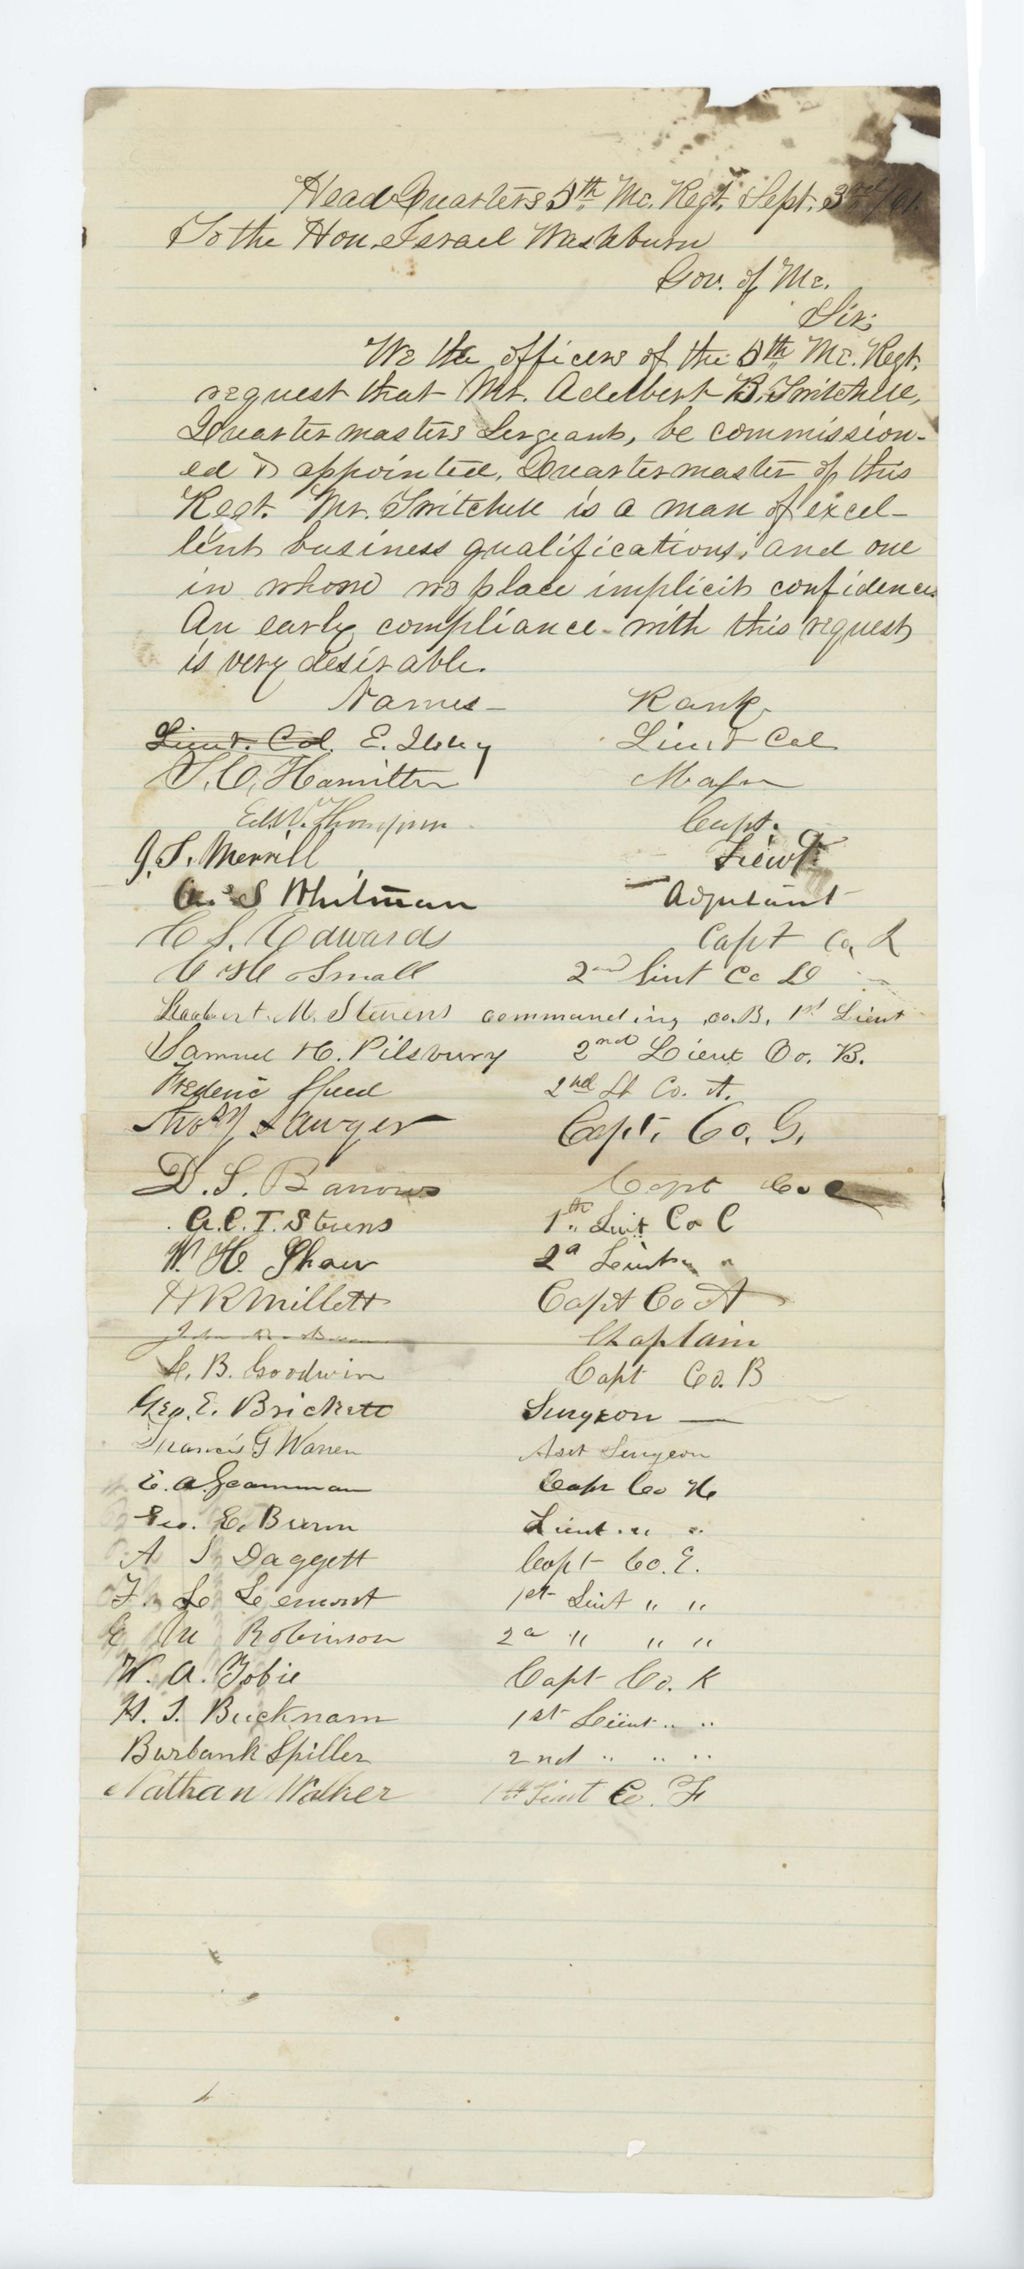 Head Quarters 5th Me. Regt. Sept. 3rd/61.
To the Hon. Israel Washburn
Gov. of Me.
Sir;
We the officers of the 5th Me. Regt.
request that Mr. Adelbert B. Twitchell,
Quartermasters Sergeant, be commission-
ed & appointed, Quartermaster of this
Regt. Mr. Twitchell is a man of excel-
lent business qualifications, and one
in whom we place implicit confidence
An early compliance with this request
is very desirable.
Names - Rank
Lieut. Col. E. Ilsley Lieut Col
S. C. Hamilton Major
Edw. Thompson Capt.
J. S. Merrill Lieut.
A. S Whitman Adjutant
C S. Edwards Capt Co,
C H Small 2nd Liut Co
Robert M. Stevens commanding co. B, 1st Lieut
Samuel H. Pilsbury 2nd Lieut Co. B.
Frederic Speed 2nd Lt Co. A.
Thos Sawyer Capt. Co. G.
D. S. Barrows Capt Co C
A. C. T. Stevens 1th Liut Co C
W. H. Shaw 2d Lieut " "
H R Millett Capt Co A
John Chaplain
L. B. Goodwin Capt Co. B
Geo. E. Brickett Surgeon —
Francis G Warren Asst Surgeon
E. A. Scamman Capt Co H
Geo. E. Brown Lieut " "
A S Daggett Capt Co. E.
F. L. Lemont 1st Liut " "
G M Robinson 2d " " "
W. A. Tobie Capt Co. K
H. T. Bucknam 1st Lieut " "
Burbank Spiller 2nd " " "
Nathan Walker 1st Lieut Co. F